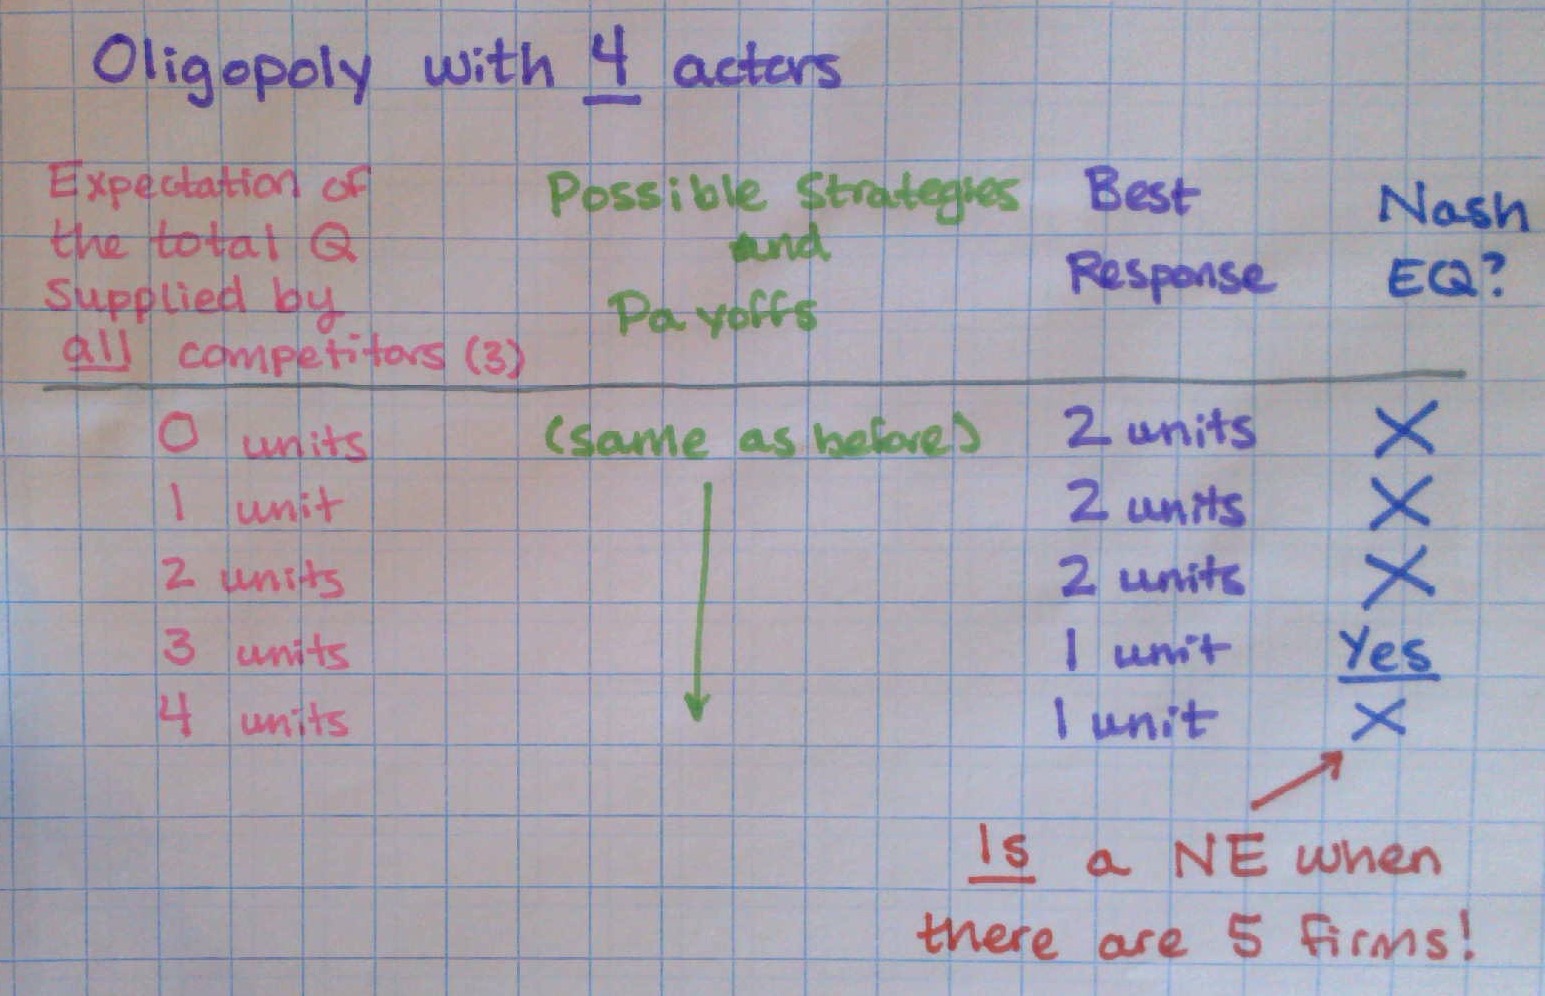 Oligopoly with 4 actors
Expectation of
the total Q
Supplied by
all competitors (3)
Possible Strategies
and
Payoffs
Best
Response
Nash
EQ?
0 units (same as before) 2 units X
1 unit 2 units X
2 units 2 units X
3 units 1 unit Yes
4 units 1 unit X
Is a NE when
there are 5 firms!